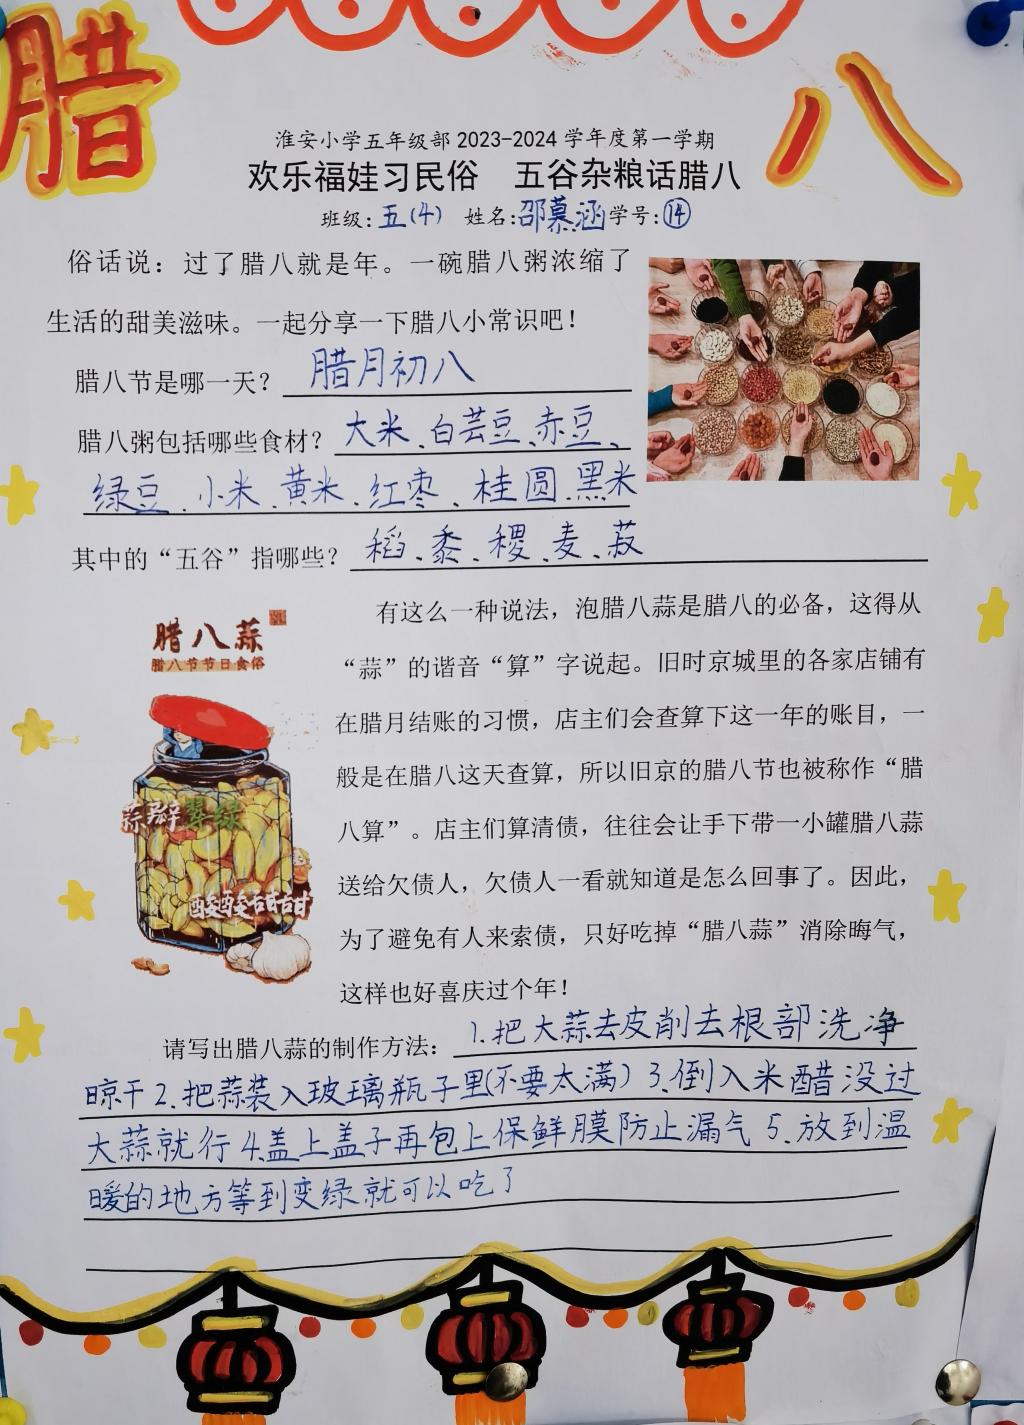 腊 八
淮安小学五年级部 2023-2024 学年度第一学期
欢乐福娃习民俗 五谷杂粮话腊八
班级:五(4) 姓名:邵慕涵学号:⑭
俗话说：过了腊八就是年。一碗腊八粥浓缩了
生活的甜美滋味。一起分享一下腊八小常识吧！
腊八节是哪一天？腊月初八
腊八粥包括哪些食材？大米、白芸豆、赤豆、
绿豆、小米、黄米、红枣、桂圆、黑米
其中的“五谷”指哪些？稻、黍、稷、麦、菽
腊八蒜
腊八节节日食俗
蒜瓣翠绿
酸酸甜甜
有这么一种说法，泡腊八蒜是腊八的必备，这得从
“蒜”的谐音“算”字说起。旧时京城里的各家店铺有
在腊月结账的习惯，店主们会查算下这一年的账目，一
般是在腊八这天查算，所以旧京的腊八节也被称作“腊
八算”。店主们算清债，往往会让手下带一小罐腊八蒜
送给欠债人，欠债人一看就知道是怎么回事了。因此，
为了避免有人来索债，只好吃掉“腊八蒜”消除晦气，
这样也好喜庆过个年！
请写出腊八蒜的制作方法：1.把大蒜去皮削去根部洗净
晾干2.把蒜装入玻璃瓶子里(不要太满)3.倒入米醋没过
大蒜就行4.盖上盖子再包上保鲜膜防止漏气5.放到温
暖的地方等到变绿就可以吃了